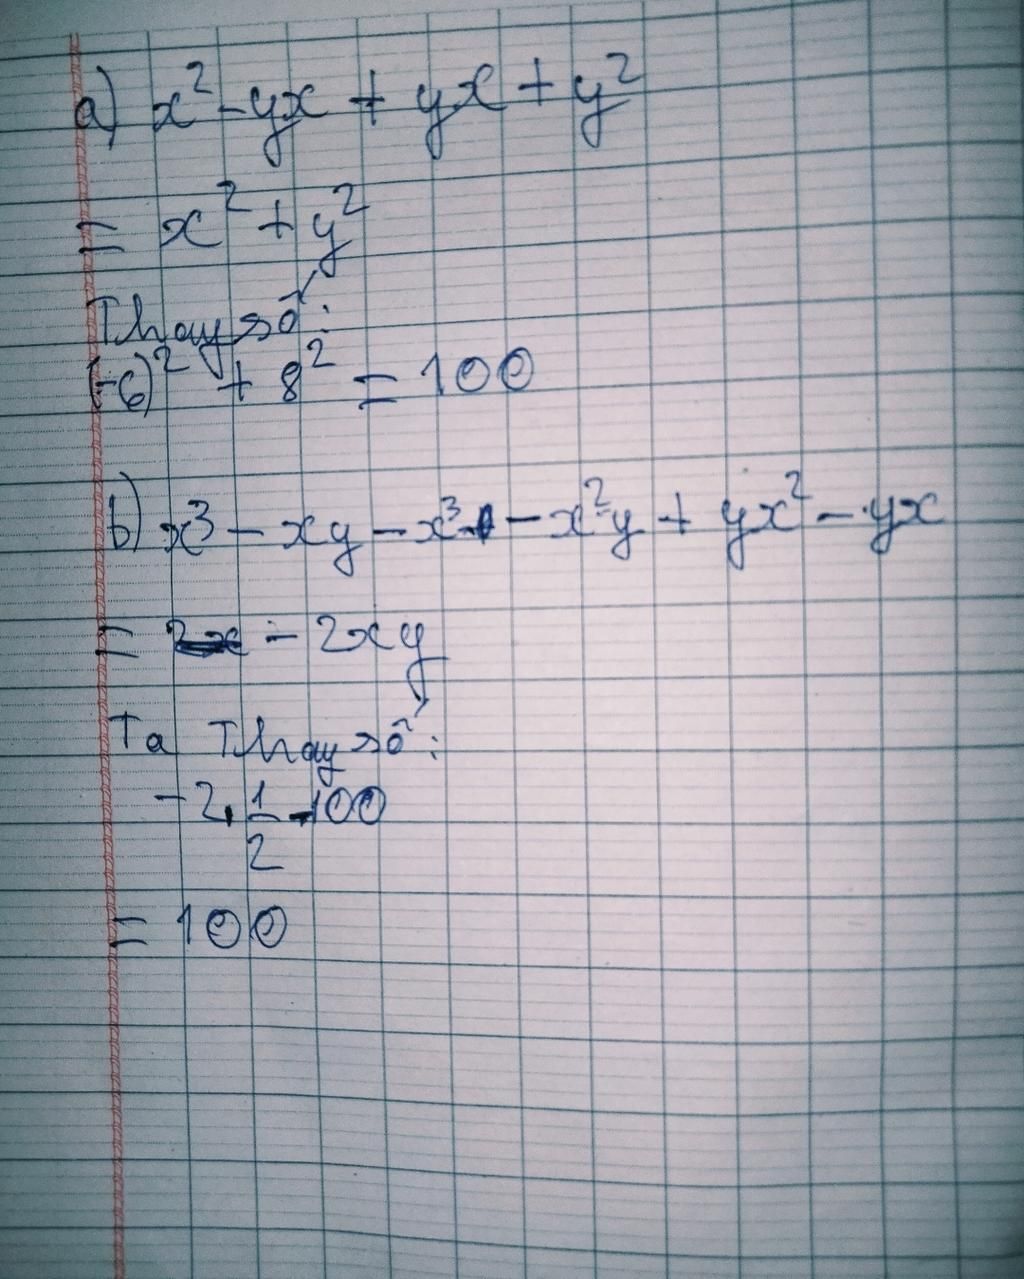 a) x² - yx + yx + y²
= x² + y²
Thay số:
(-6)² + 8² = 100
b) x³ - xy - x³ - x²y + yx² - yx
= - 2xy
Ta Thay số:
- 2 . 1/2 . -100
= 100